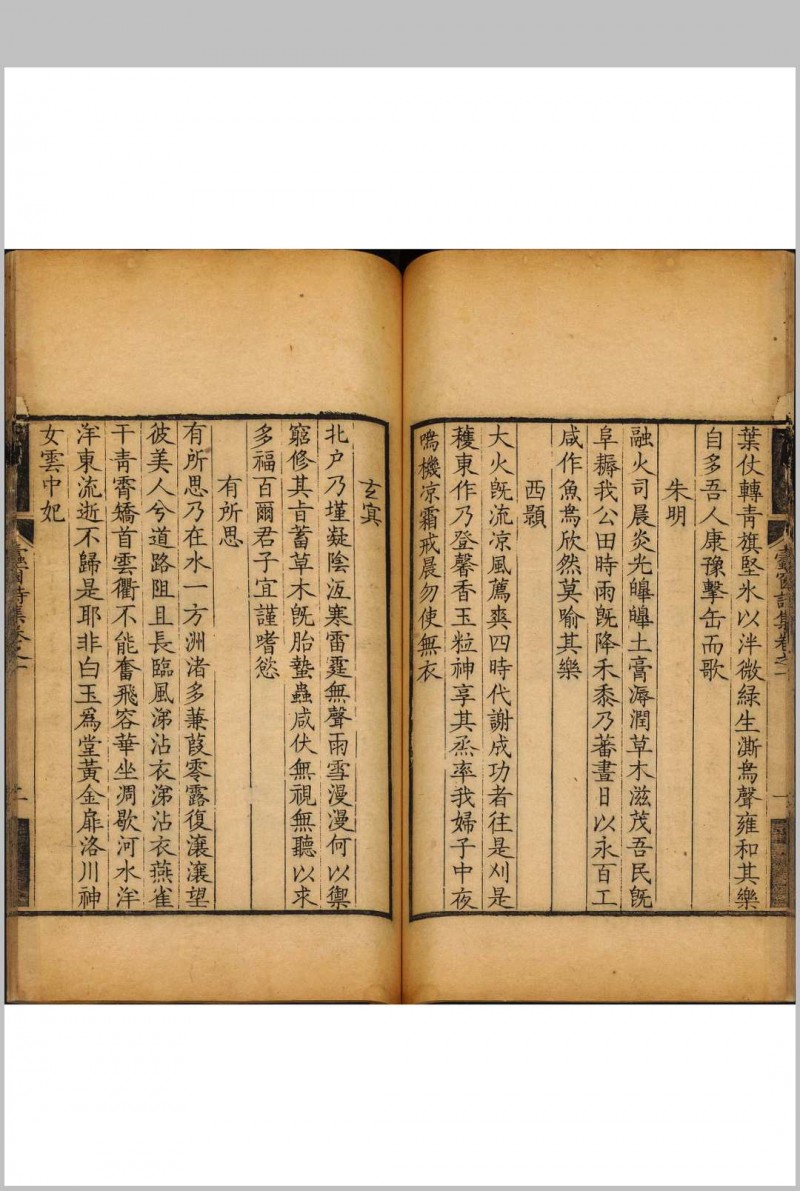 葉仗轉青旗堅氷以泮微綠生漸鳥聲雍和其樂
自多吾人康豫擊缶而歌
朱明
融火司晨炎光皞皞土膏溽潤草木滋茂吾民旣
阜耨我公田時雨旣降禾黍乃蕃晝日以永百工
咸作魚鳥欣然莫喻其樂
西顥
大火旣流凉風薦爽四時代謝成功者往是刈是
穫東作乃登馨香玉粒神享其烝率我婦子中夜
鳴機凉霜戒晨勿使無衣
玄冥
北戶乃墐凝陰沍寒雷霆無聲雨雪漫漫何以禦
窮修其旨蓄草木旣胎蟄蟲咸伏無視無聽以求
多福百爾君子宜謹嗜慾
有所思
有所思乃在水一方洲渚多蒹葭零露復瀼瀼望
彼美人兮道路阻且長臨風涕沾衣涕沾衣燕雀
干靑霄矯首雲衢不能奮飛容華坐凋歇河水洋
洋東流逝不歸是耶非白玉爲堂黃金扉洛川神
女雲中妃